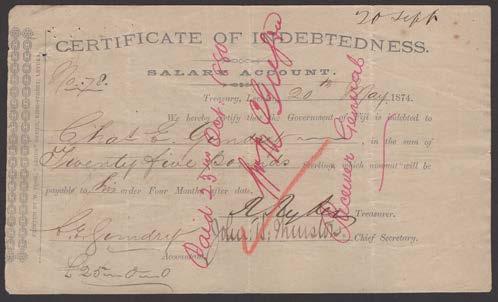 20 Sept
CERTIFICATE OF INDEBTEDNESS.
No. 78.
SALARY ACCOUNT.
Treasury, 20th May, 1874.
We hereby certify that the Government of Fiji is indebted to
Chas. E. in the sum of
Twenty five Pounds Sterling, which amount will be
payable to his order Four Months after date.
Treasurer.
Chief Secretary.
Accountant.
£25
Paid 25 Oct 1880
Receiver General